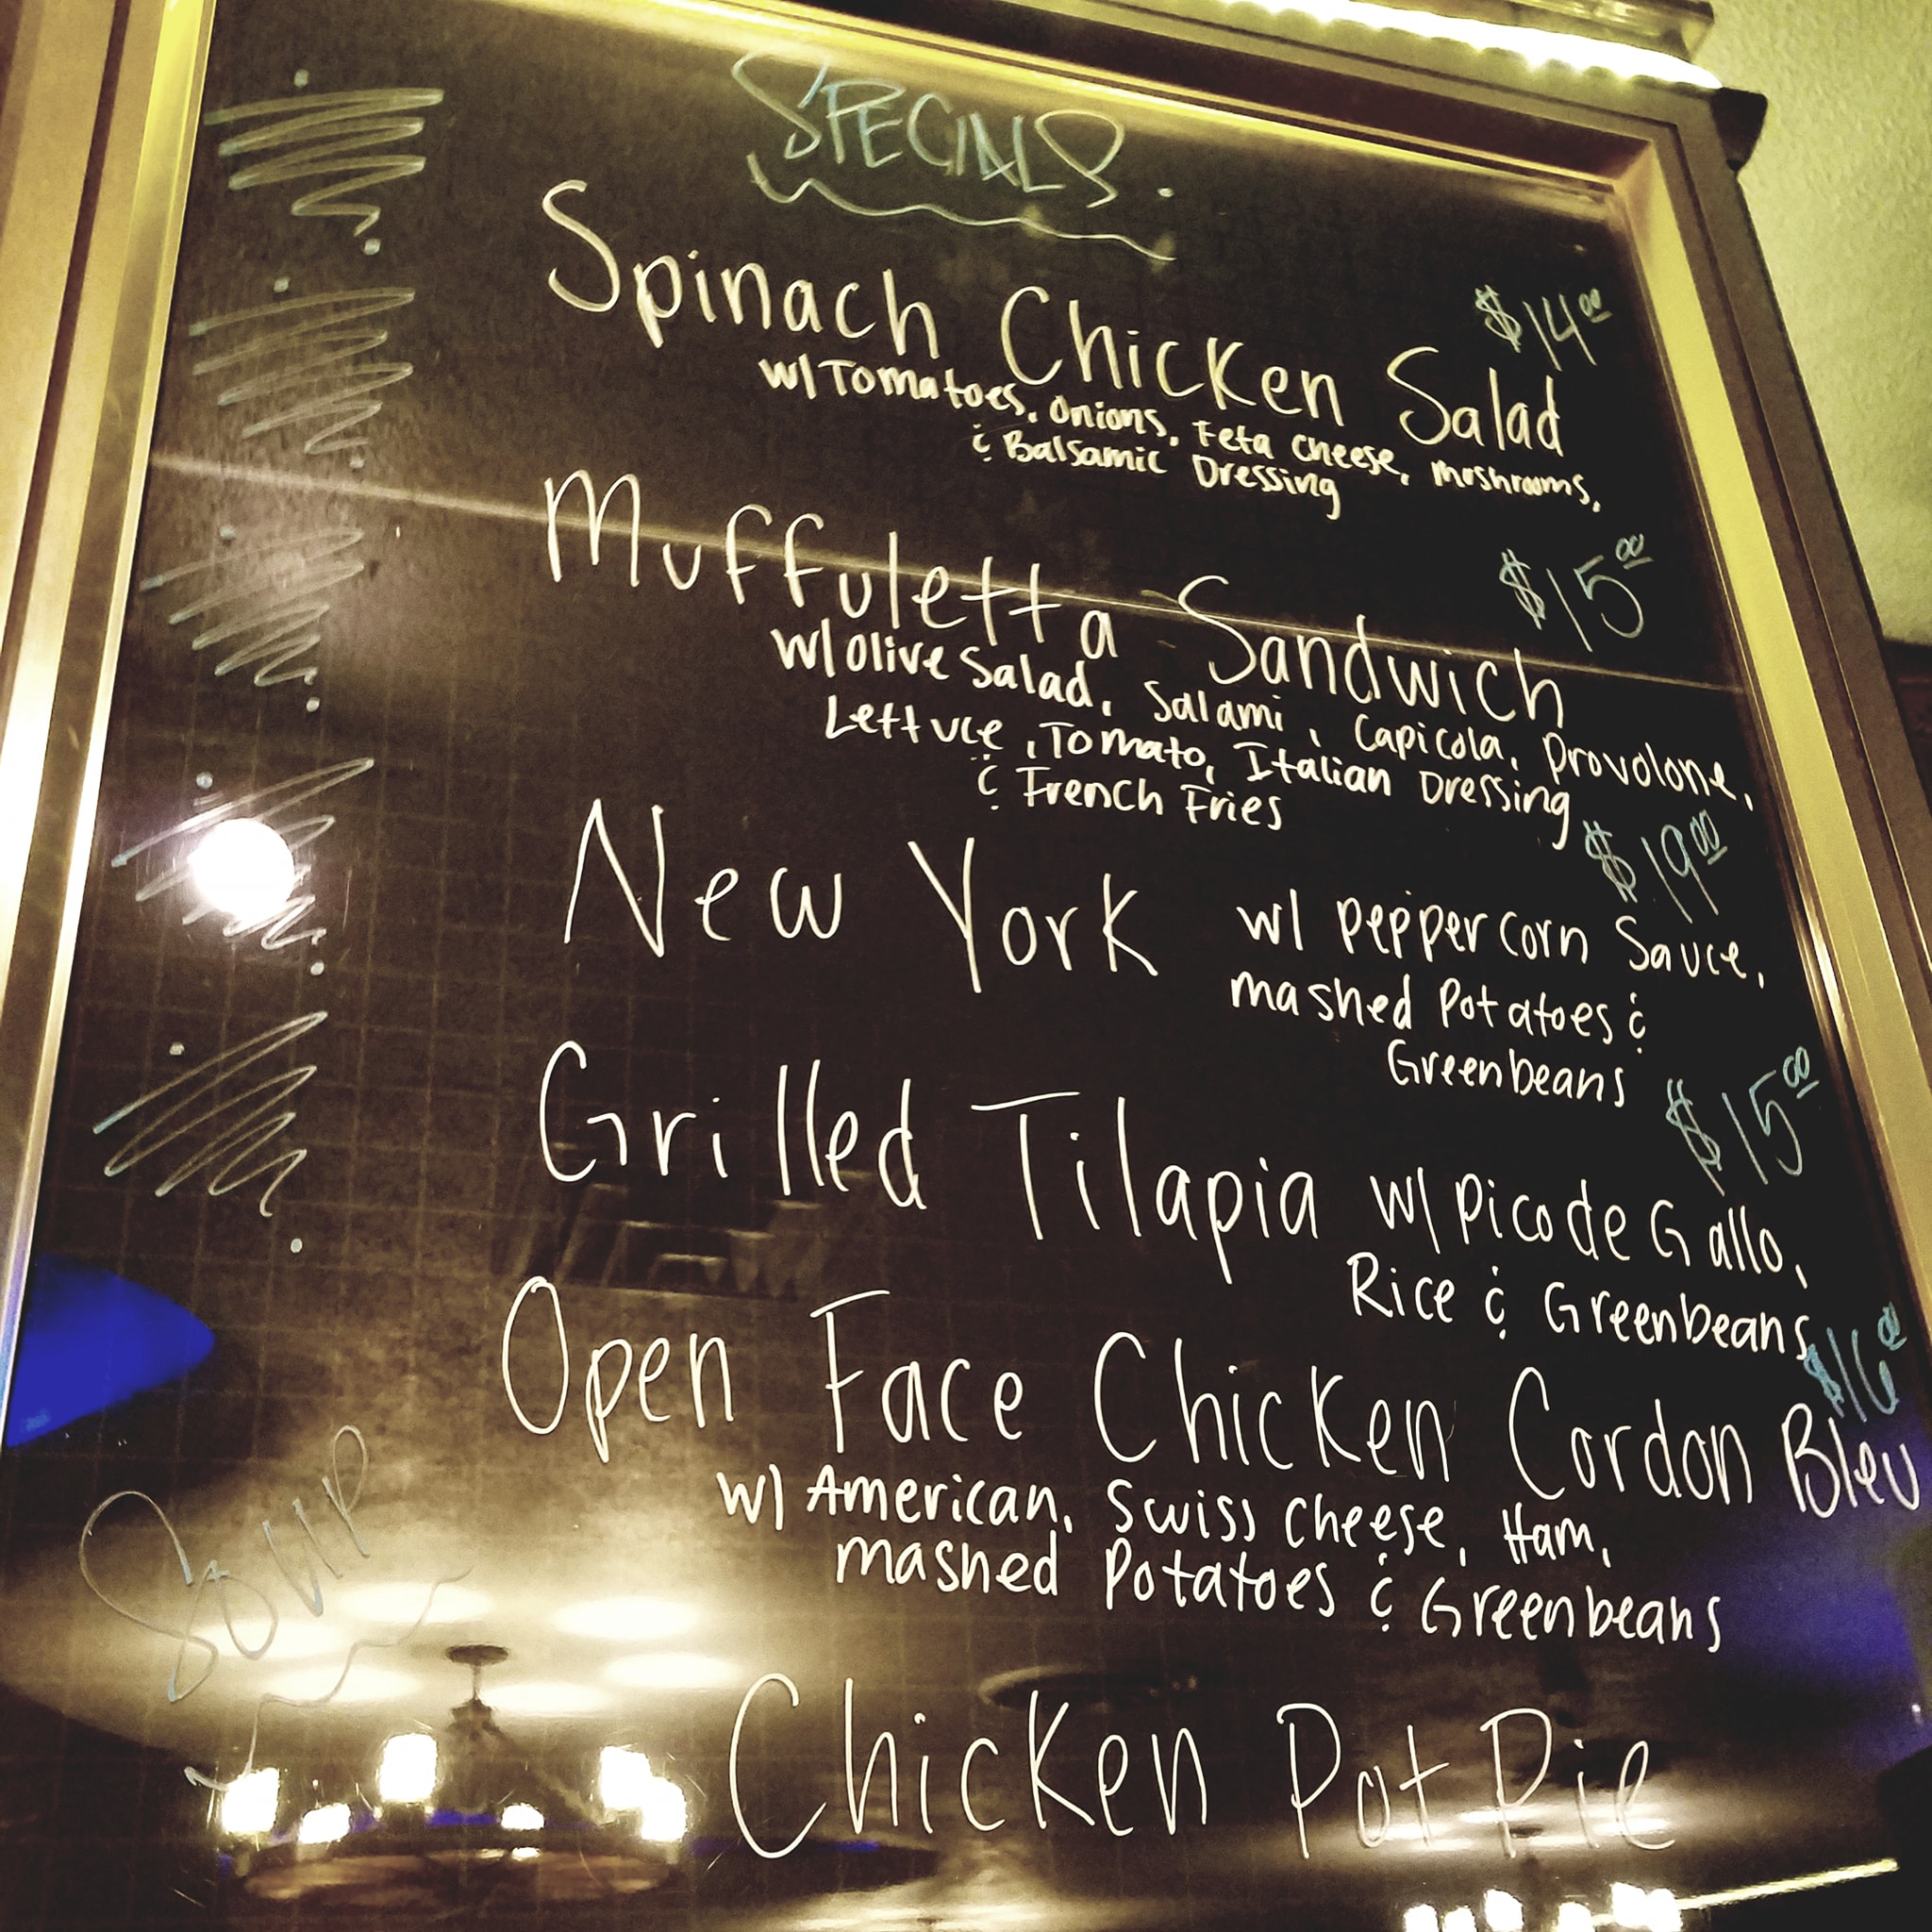 SPECIALS
Spinach Chicken Salad $14.00
w/ Tomatoes, Onions, Feta Cheese, Mushrooms,
& Balsamic Dressing
Muffuletta Sandwich $15.00
w/ Olive Salad, Salami, Capicola, Provolone,
Lettuce, Tomato, Italian Dressing
& French Fries
New York w/ Peppercorn Sauce, $19.00
mashed Potatoes &
Greenbeans
Grilled Tilapia w/ Pico de Gallo, $15.00
Rice & Greenbeans
Open Face Chicken Cordon Bleu $16.00
w/ American, Swiss Cheese, Ham,
mashed Potatoes & Greenbeans
SOUP
Chicken Pot Pie